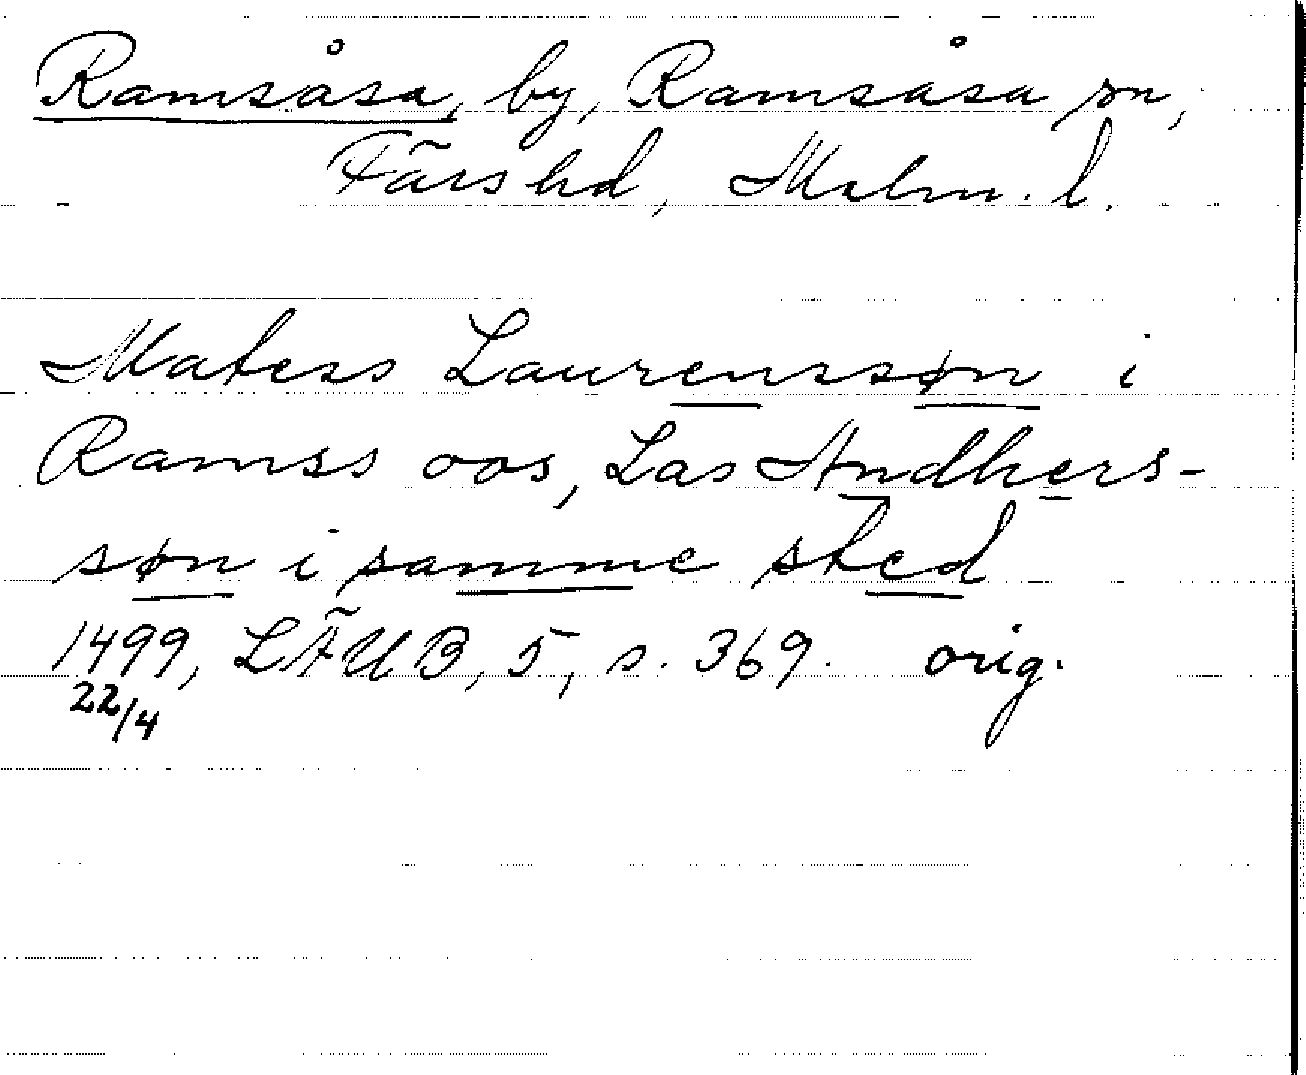 Ramsåsa, by, Ramsåsa sn,
Färs hd, Malm. l.
Matess Laurenssøn i
Ramss oos, Las Andhers-
søn i samme sted
1499, LÄUB, 5, s. 369. orig.
22/4